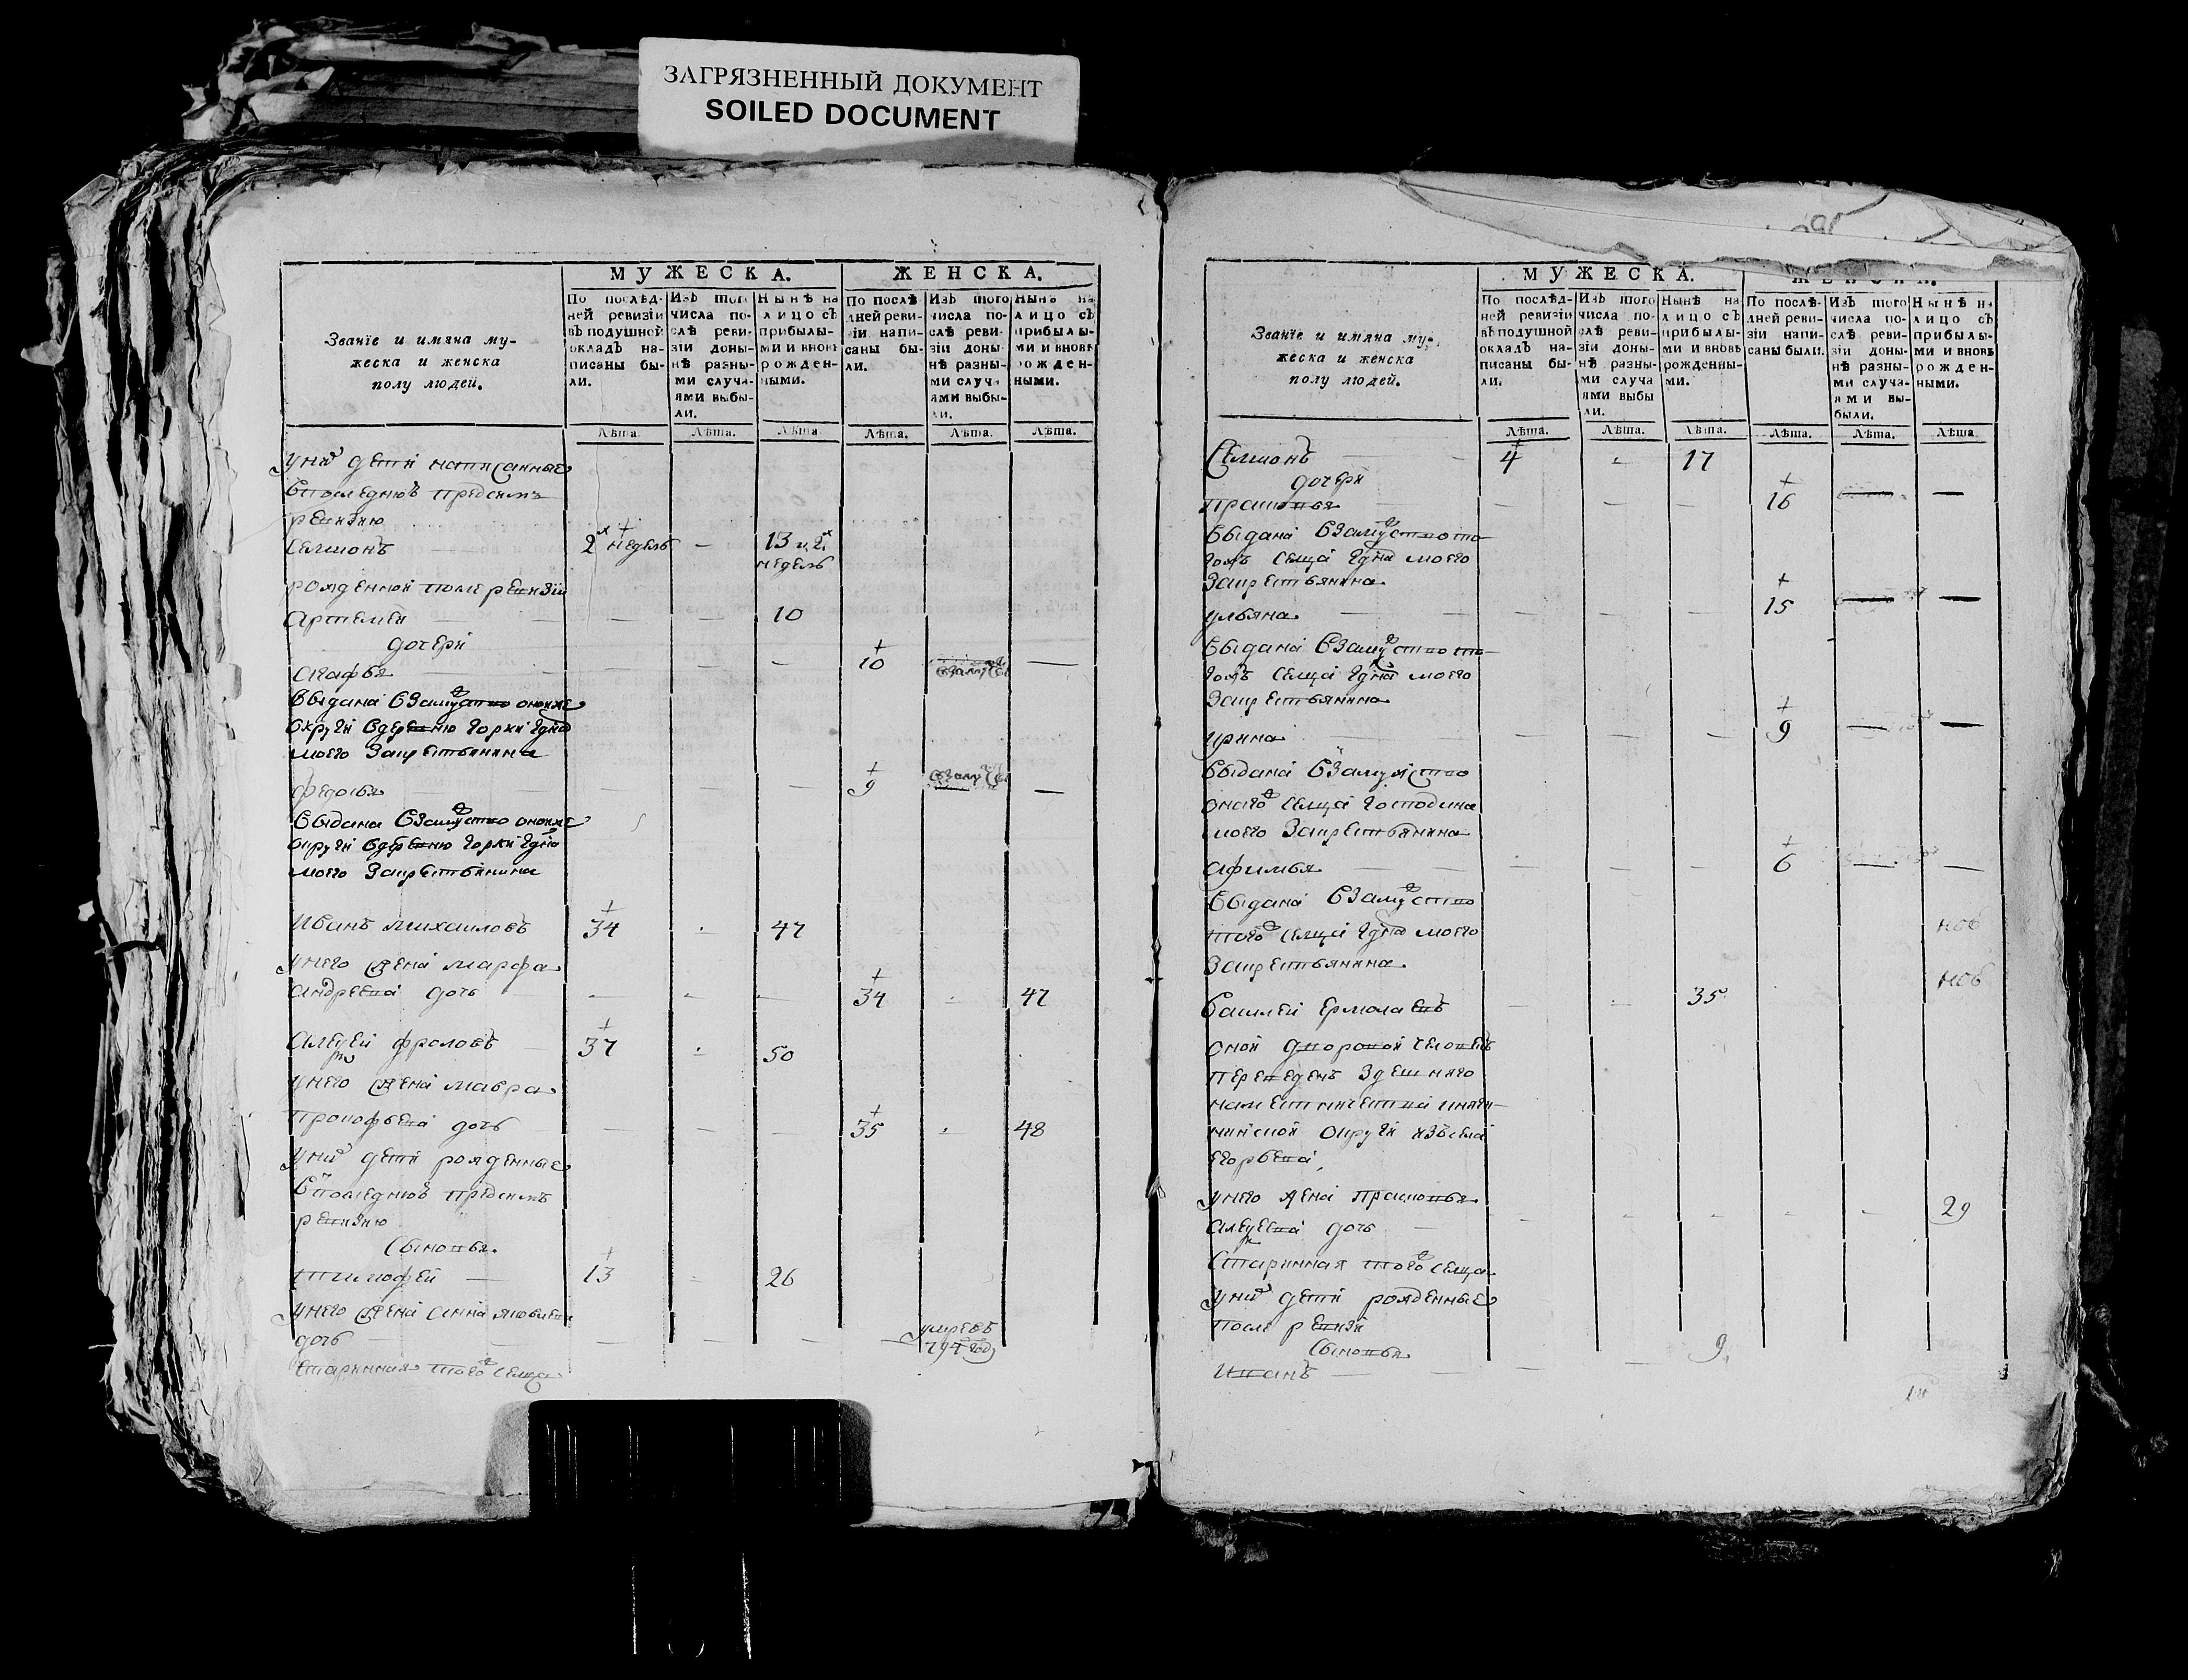 ЗАГРЯЗНЕННЫЙ ДОКУМЕНТ
SOILED DOCUMENT
МУЖЕСКА. ЖЕНСКА.
Званїе и имяна му-
жеска и женска
полу людей.
По послѣд-
ней ревизїи
въ подушной
окладъ на-
писаны бы-
ли.
Изъ того
числа по-
слѣ реви-
зїи доны-
нѣ разны-
ми случа-
ями выбы-
ли.
Нынѣ на
лицо съ
прибылы-
ми и вновь
рожден-
ными.
По послѣ-
дней реви-
зїи напи-
саны бы-
ли.
Изъ того
числа по-
слѣ реви-
зїи доны-
нѣ разны-
ми случа-
ями выбы-
ли.
Нынѣ на
лицо съ
прибылы-
ми и вновь
рожден-
ными.
Лѣта. Лѣта. Лѣта. Лѣта. Лѣта. Лѣта.
у них дети написанные
в последнюю пред сим
ревизию
Семионъ 2х недель — 13 и 2х
недель
рожденной после ревизии
Артемеи — — 10
дочери
Агафья — — — 10 —
выдана взамужство оной же
округи вдеревню горки гдна
моего за крестьянина
Федосья — — — 9 —
выдана взамужство оной же
округи вдеревню горки гдна
моего за крестьянина
Иванъ михаиловъ 34 - 47
у него жена марфа
андреева дочь — — — 34 - 47
Алексеи фроловъ 37 - 50
у него жена мавра
прокофьева дочь — — — 35 - 48
у них дети рожденные
в последнюю пред симъ
ревизию
Сыновья
тимофеи — 13 - 26
у него жена анна яковлева
дочь — — — — умре въ
794 году
старинная того ж селца
МУЖЕСКА.
Званїе и имяна му-
жеска и женска
полу людей.
По послѣд-
ней ревизїи
въ подушной
окладъ на-
писаны бы-
ли.
Изъ того
числа по-
слѣ реви-
зїи доны-
нѣ разны-
ми случа
ями выбы
ли.
Нынѣ на
лицо съ
прибылы-
ми и вновь
рожденны-
ми.
По послѣ-
дней реви-
зїи напи-
саны были.
Изъ того
числа по-
слѣ реви-
зїи доны-
нѣ разны-
ми случа-
ями вы-
были.
Нынѣ на
лицо съ
прибылы-
ми и вновь
рожден-
ными.
Лѣта. Лѣта. Лѣта. Лѣта. Лѣта. Лѣта
Семионъ 4 - 17
дочери
прасковья — — — 16 — —
выдана взамужство то
гожъ селца гдна моего
за крестьянина
ульяна — — — 15 — —
выдана взамужство то
гожъ селца гдна моего
за крестьянина
ирина — — — 9 — —
выдана взамужство
оного ж селца господина
моего за крестьянина
афимья — — — 6 — —
выдана взамужство
того ж селца гдна моего
за крестьянина
василеи ермолаевъ — - 35
оной дворовой человекъ
переведенъ здешняго
наместничества княги-
нинской округи изъ села
егорьева
у него жена прасковья
алексеева дочь — - - - - 29
старинная того ж селца
у них дети рожденные
после ревизи
Сыновья
Иванъ — — — 9